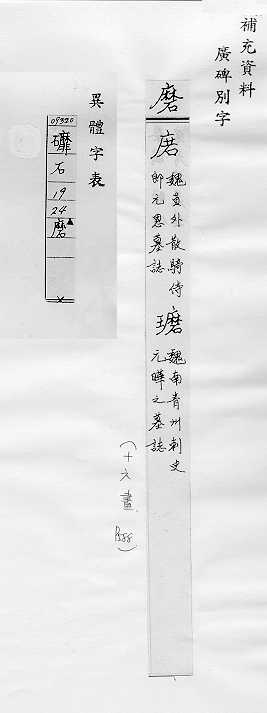 補充資料
廣碑別字
磨
磨 魏員外散騎侍
郎元恩墓誌
魏南青州刺史
元曄之墓誌
(十六畫
異體字表
09320
礳
石
19
24
磨